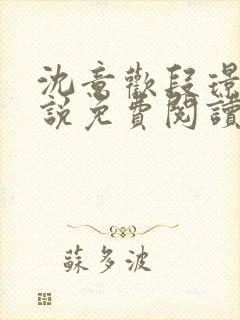 沈意歡段璟
說免費閱讀
蘇多波